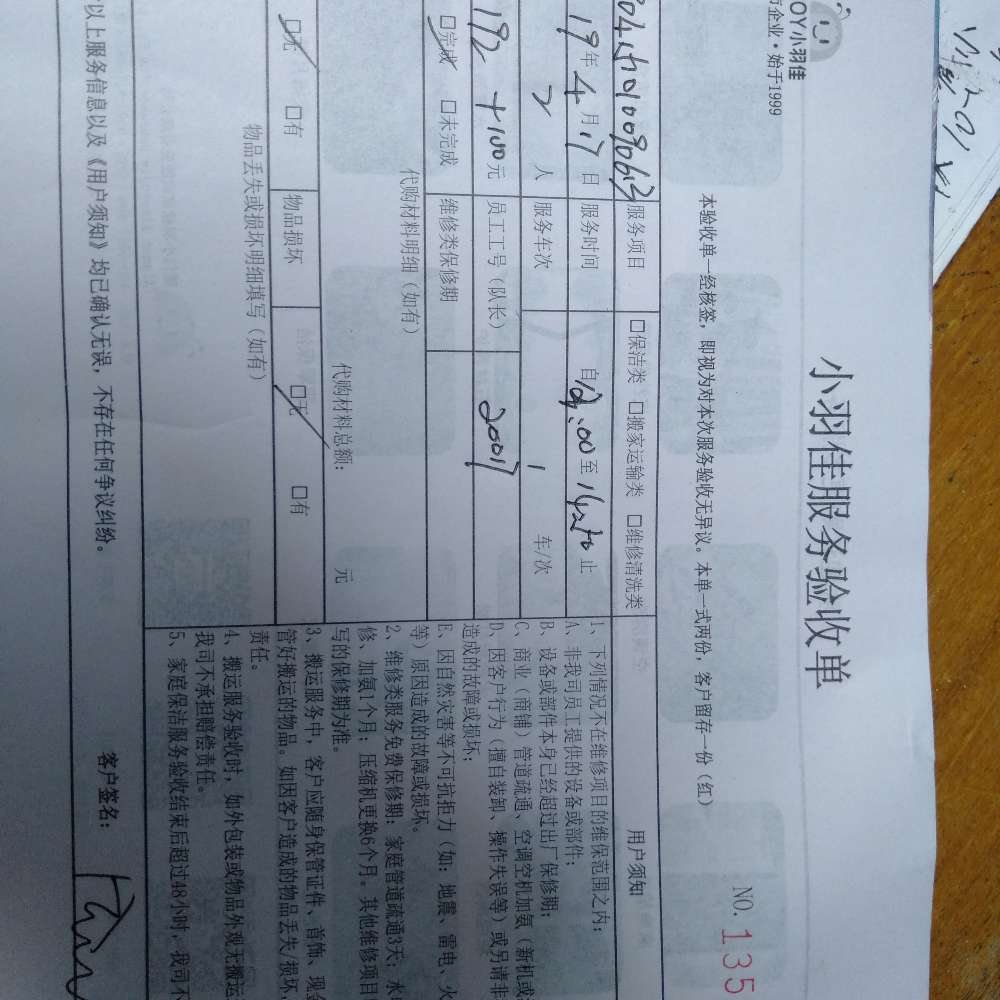 OY小羽佳
企业·始于1999
小羽佳服务验收单
本验收单一经核签，即视为对本次服务验收无异议。本单一式两份，客户留存一份（红）
NO.135
服务项目 □保洁类 □搬家运输类 □维修清洗类
19年4月17日 服务时间 自 至 止
2人 服务车次 1 车/次
192+100元 员工工号（队长） 20017
□完成 □未完成 维修类保修期
代购材料明细（如有）
代购材料总额： 元
□无 □有 物品损坏 □无 □有
物品丢失或损坏明细填写（如有）
用户须知
1、下列情况不在维修项目的维保范围之内：
A、非我司员工提供的设备或部件；
B、设备或部件本身已经超过出厂保修期；
C、商业（商铺）管道疏通、空调空机加氨（新机或
D、因客户行为（擅自装卸、操作失误等）或另请非
造成的故障或损坏；
E、因自然灾害等不可抗拒力（如：地震、雷电、火
等）原因造成的故障或损坏。
2、维修类服务免费保修期：家庭管道疏通3天；水
修、加氨1个月；压缩机更换6个月。其他维修项目
写的保修期为准。
3、搬运服务中，客户应随身保管证件、首饰、现金
管好搬运的物品。如因客户造成的物品丢失/损坏，
责任。
4、搬运服务验收时，如外包装或物品外观无搬运
我司不承担赔偿责任。
5、家庭保洁服务验收结束后超过48小时，我司不
以上服务信息以及《用户须知》均已确认无误，不存在任何争议纠纷。
客户签名：